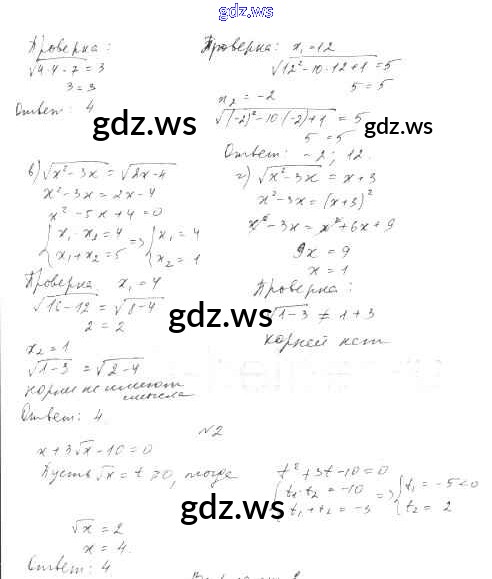 gdz.ws
Проверка:
√4·4-7 = 3
3 = 3
Ответ: 4
Проверка: x₁ = 12
√12² - 10·12 + 1 = 5
5 = 5
x₂ = -2
√(-2)² - 10·(-2) + 1 = 5
5 = 5
Ответ: -2; 12.
gdz.ws
gdz.ws
в) √x² - 3x = √2x - 4
x² - 3x = 2x - 4
x² - 5x + 4 = 0
{x₁·x₂ = 4 => {x₁ = 4
x₁ + x₂ = 5 x₂ = 1
Проверка x₁ = 4
√16 - 12 = √8 - 4
2 = 2
x₂ = 1
√1 - 3 = √2 - 4
корни не имеют
смысла
Ответ: 4
г) √x² - 3x = x + 3
x² - 3x = (x + 3)²
x² - 3x = x² + 6x + 9
9x = 9
x = 1
Проверка:
√1 - 3 ≠ 1 + 3
корней нет
gdz.ws
gdz.ws
№2
x + 3√x - 10 = 0
Пусть √x = t ≥ 0, тогда
t² + 3t - 10 = 0
{t₁·t₂ = -10 => {t₁ = -5 < 0
t₁ + t₂ = -3 t₂ = 2
√x = 2
x = 4.
Ответ: 4
gdz.ws
gdz.ws